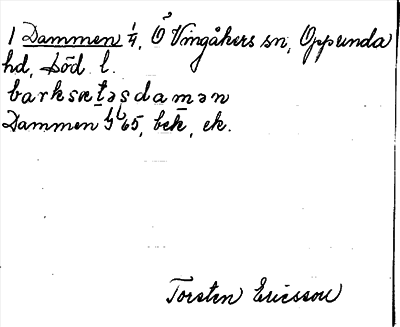 1 Dammen 1/4, Ö Vingåkers sn, Oppunda
hd, Söd l.
barksætəsdamən
Dammen Gb 65, bek, ek.
Torsten Ericsson